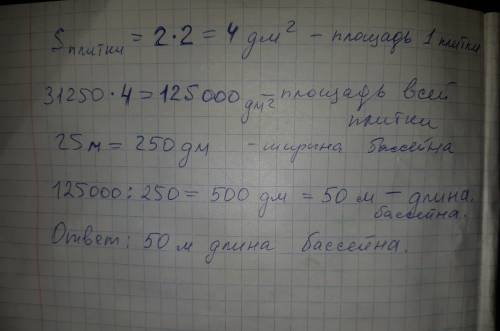 Sплитки = 2·2 = 4 дм² – площадь 1 плитки
31250·4=125000 дм² – площадь всей
плитки
25м = 250 дм - ширина бассейна
125000:250 = 500 дм = 50 м – длина
бассейна.
Ответ: 50 м длина бассейна.